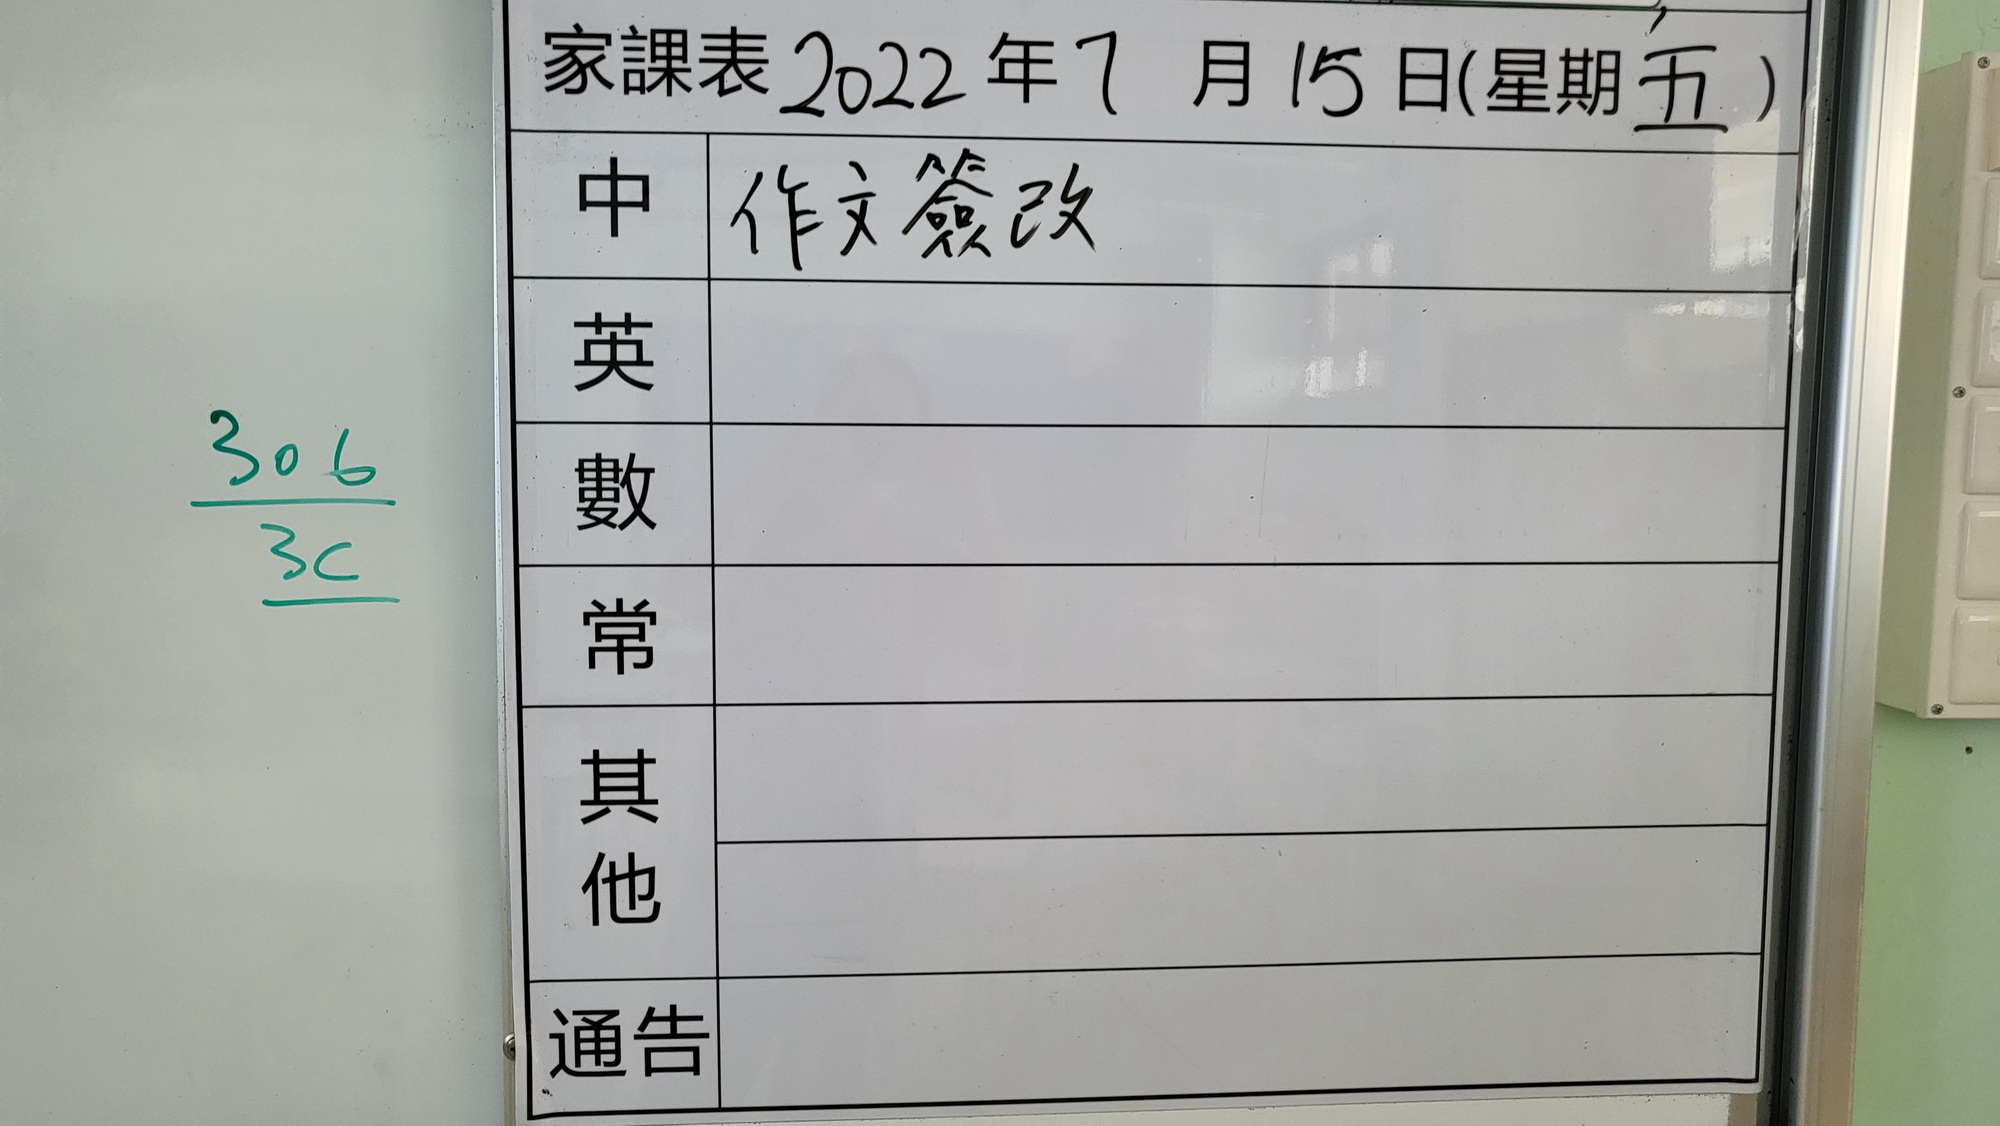 家課表 2022 年 7 月 15 日(星期五)
中 作文簽改
英
數
常
其他
通告
306
3C